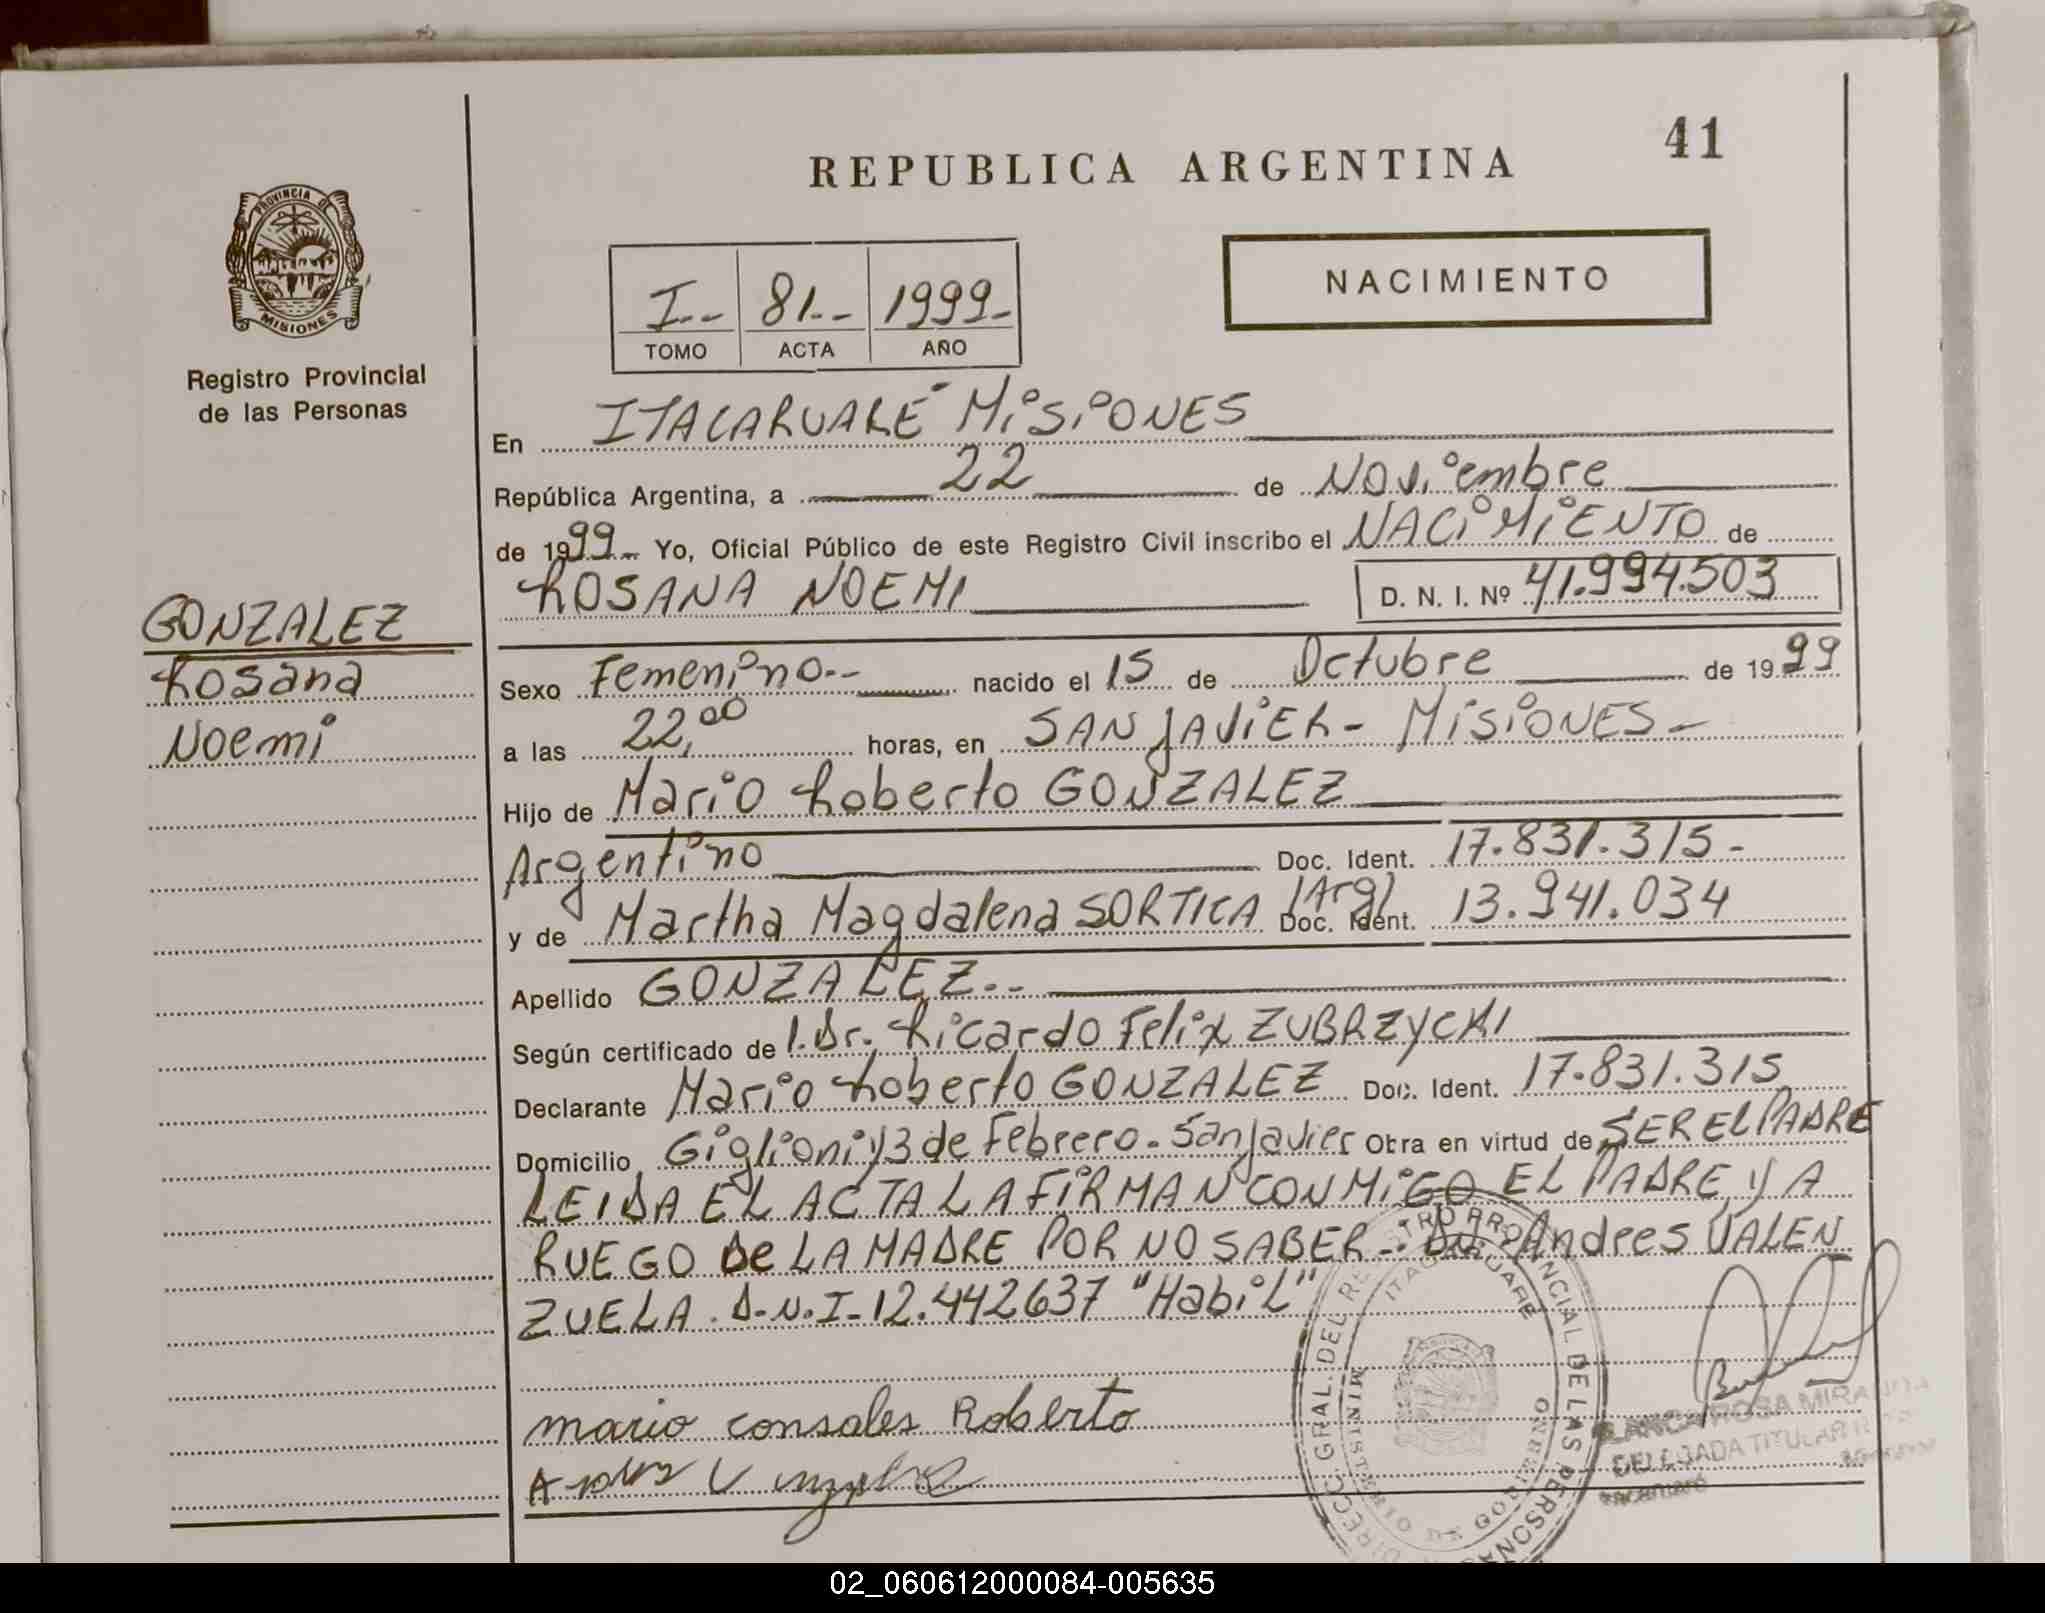 41
REPUBLICA ARGENTINA
PROVINCIA DE
MISIONES
NACIMIENTO
I-- 81-- 1999-
TOMO ACTA AÑO
Registro Provincial
de las Personas
En ITACARUARÉ MISIONES
República Argentina, a 22 de Noviembre
de 1999 Yo, Oficial Público de este Registro Civil inscribo el NACIMIENTO de
ROSANA NOEMI D. N. I. Nº 41.994.503
GONZALEZ
Rosana
Noemi
Sexo Femenino-- nacido el 15 de Octubre de 1999
a las 22,00 horas, en SAN JAVIER - MISIONES -
Hijo de Mario Roberto GONZALEZ
Argentino Doc. Ident. 17.831.315-
y de Martha Magdalena SORTICA (Arg) Doc. Ident. 13.941.034
Apellido GONZALEZ--
Según certificado de l. Dr. Ricardo Felix ZUBRZYCKI
Declarante Mario Roberto GONZALEZ Doc. Ident. 17.831.315
Domicilio Giglioni y 3 de Febrero - San Javier Obra en virtud de SER EL PADRE
LEIDA EL ACTA LA FIRMAN CONMIGO EL PADRE, Y A
RUEGO DE LA MADRE POR NO SABER -- Andres VALEN
ZUELA. D.N.I-12.442637 "Habil"
mario consales Roberto
DIRECC. GRAL. DEL REGISTRO PROVINCIAL DE LAS PERSONAS
ITACARUARE
MINISTERIO DE GOBIERNO
BLANCA ROSA MIRANDA
DELEGADA TITULAR
02_060612000084-005635